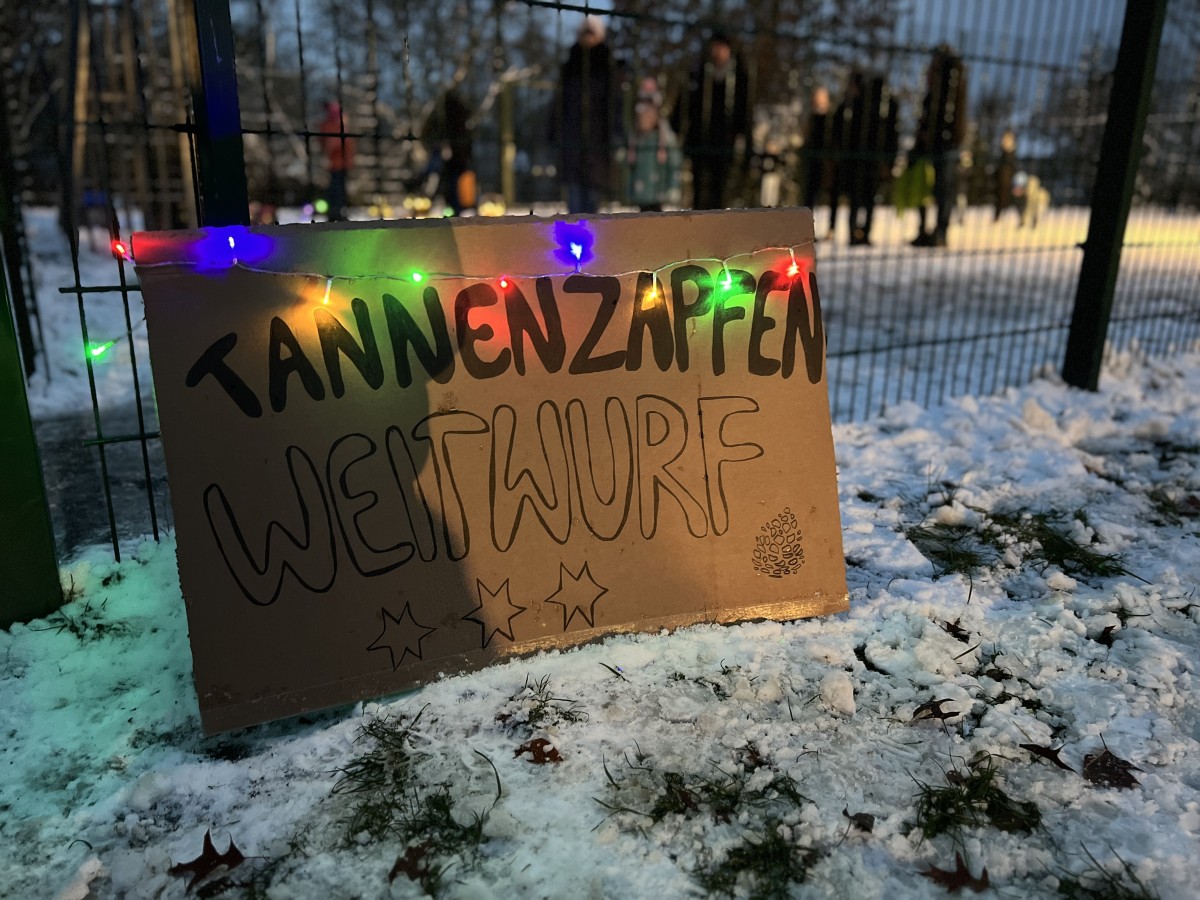 TANNENZAPFEN
WEITWURF